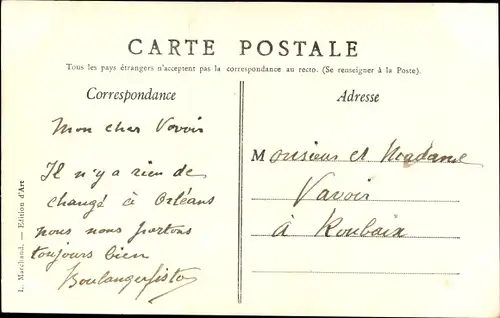 CARTE POSTALE
Tous les pays étrangers n'acceptent pas la correspondance au recto. (Se renseigner à la Poste).
Correspondance
Mon cher Vavoir
Il n'y a rien de
changé à Orléans
nous nous portons
toujours bien
Adresse
Monsieur et Madame
Vavoir
à Roubaix
L. Marchand. — Edition d'Art